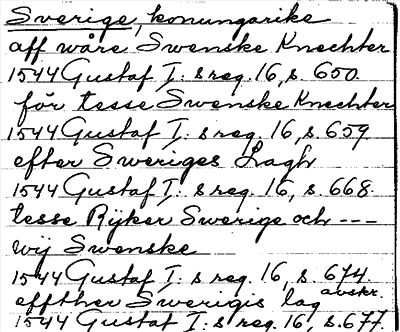 Sverige, konungarike
aff wåre Swenske Knechter
1544 Gustaf I: s reg. 16, s. 650.
för tesse Swenske Knechter
1544 Gustaf I: s reg. 16, s. 659
efter Sweriges Lagh
1544 Gustaf I: s reg. 16, s. 668.
tesse Rijker Swerige och ---
wij Swenske
1544 Gustaf I: s reg. 16, s. 674.
effther Swerigis lag avskr.
1544 Gustaf I: s reg. 16, s. 677.